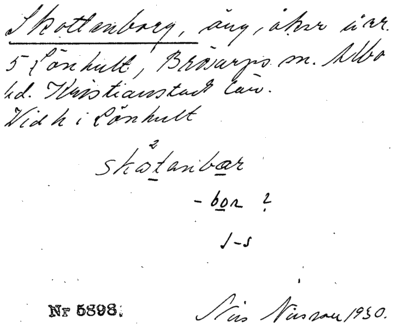 Skottanborg, äng, åker i nr.
5 Lönhult, Brösarps sn. Albo
hd. Kristianstads län.
Vid h i Lönhult
2
skotanbær
- bor ?
J-s
Nr 5898. Nils Nilsson 1930.